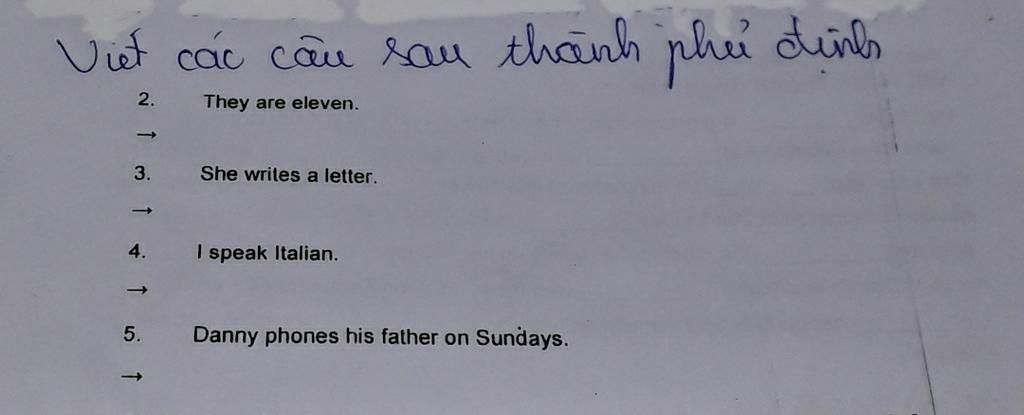 Viết các câu sau thành phủ định
2. They are eleven.
→
3. She writes a letter.
→
4. I speak Italian.
→
5. Danny phones his father on Sundays.
→